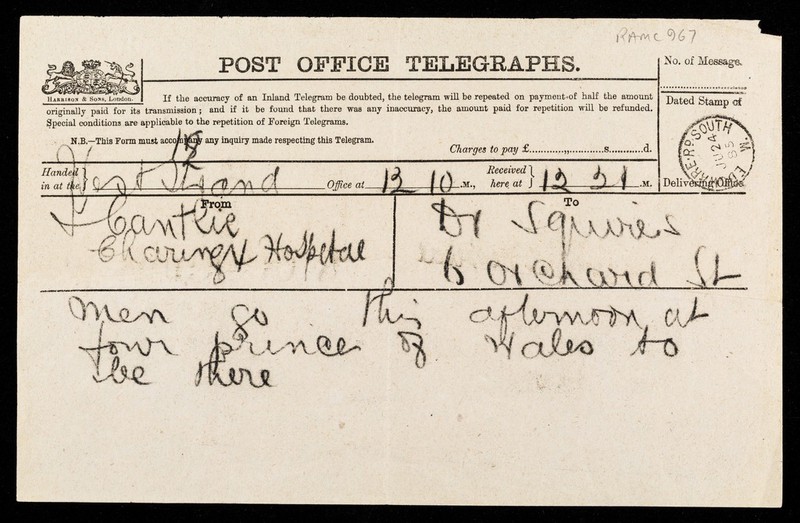 RAMC 967
POST OFFICE TELEGRAPHS.
No. of Message.
HARRISON & SONS, London.
If the accuracy of an Inland Telegram be doubted, the telegram will be repeated on payment of half the amount
originally paid for its transmission; and if it be found that there was any inaccuracy, the amount paid for repetition will be refunded.
Special conditions are applicable to the repetition of Foreign Telegrams.
Dated Stamp of
N.B.—This Form must accompany any inquiry made respecting this Telegram.
Charges to pay £ s. d.
SOUTH
JU 24
85
Handed in at the West Strand Office at 12 10 M., Received here at 12 21 M.
Delivering Office
From
Cantlie
Charing X Hospital
To
Dr Squires
6 Orchard St
Men go this afternoon at
four prince of Wales to
be there